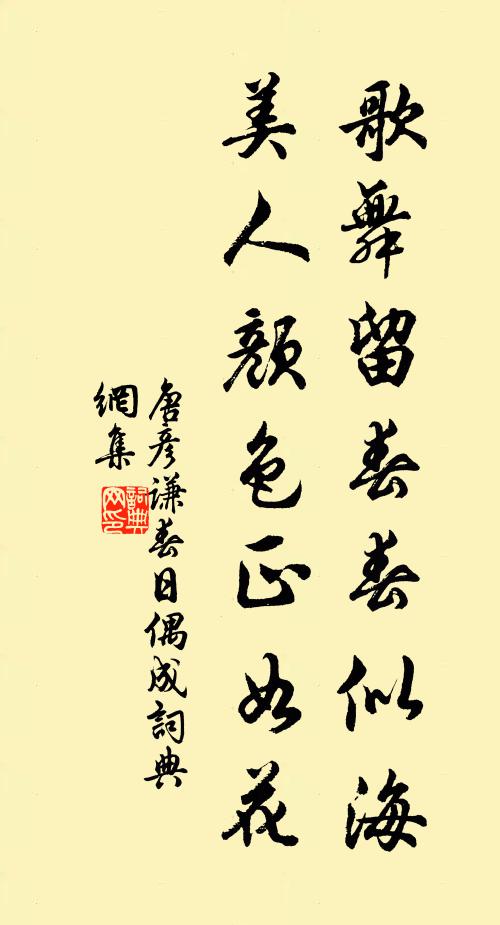 歌舞留春春似海
美人顏色正如花
唐彥謙春日偶成詞典
網集
詞典
网印